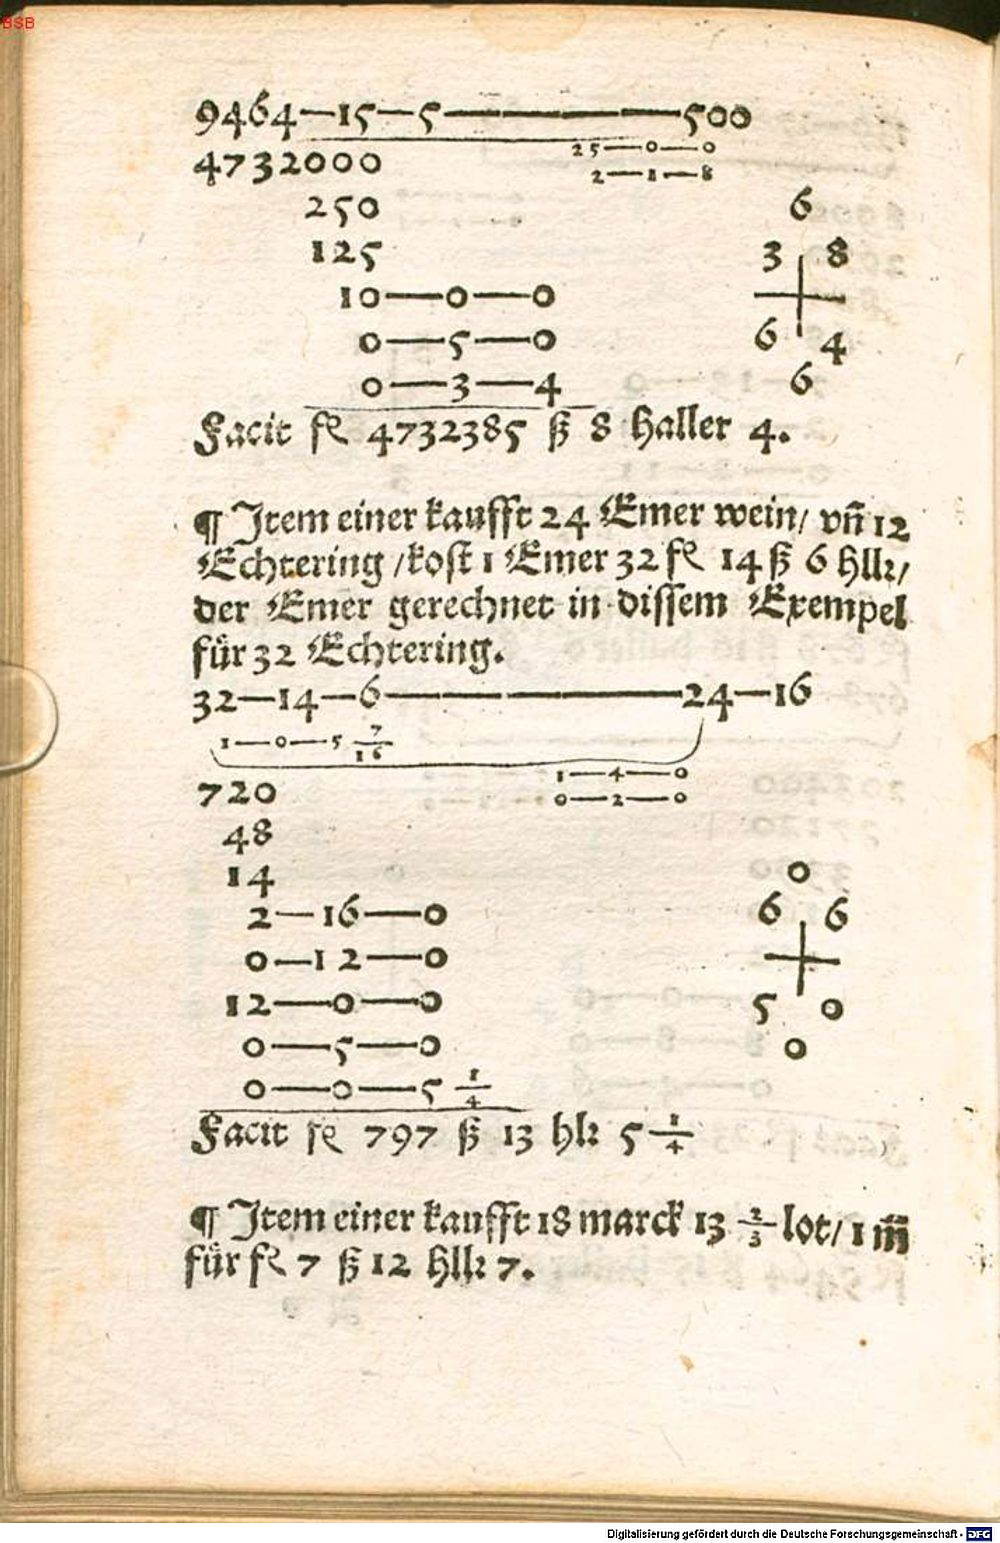 BSB
9464—15—5————500
25—0—0
4732000
2—1—8
250
6
125
3 8
10—0—0
0—5—0
6 4
0—3—4
6
Facit fl 4732385 ß 8 haller 4.
¶ Item einer kaufft 24 Emer wein/ vñ 12
Echtering /kost 1 Emer 32 fl 14 ß 6 hllr/
der Emer gerechnet in dissem Exempel
für 32 Echtering.
32—14—6————24—16
1—0—5 7/16
1—4—0
720
0—2—0
48
14
0
2—16—0
6 6
0—12—0
12—0—0
5 0
0—5—0
0
0—0—5 1/4
Facit fl 797 ß 13 hlr 5 1/4
¶ Item einer kaufft 18 marck 13 2/3 lot/ 1 m̄
für fl 7 ß 12 hllr 7.
Digitalisierung gefördert durch die Deutsche Forschungsgemeinschaft - DFG